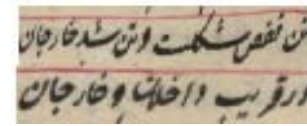 تن قفص شکلست و تن شد خار جان
در فریب داخلان و خارجان